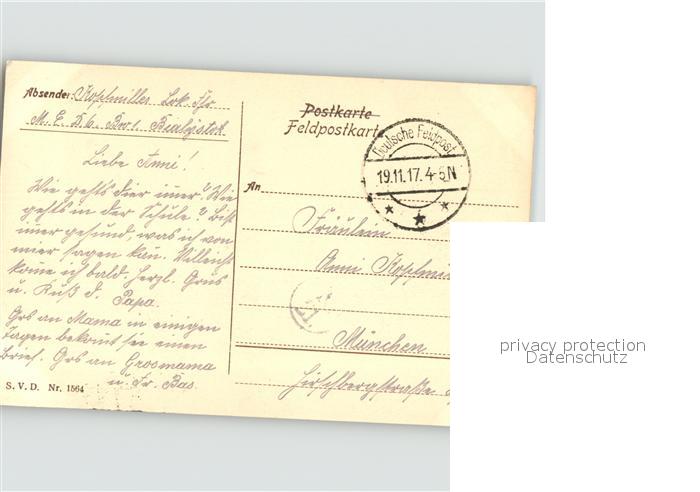 Absender: Kopfmiller Lok. Fhr.
M. E. D. 6. Bw 1. Bialystok
Liebe Anni!
Wie gehts dier imer? Wie
gehts in der Schule? Bist
imer gesund, was ich von
mier sagen kan. Villeicht
kome ich bald herzl. Grus
u. Kuß d. Papa.
Grs an Mama in einigen
Tagen bekomt sie einen
Brief. Grs an Grosmama
u. Fr. Bas.
S. V. D. Nr. 1564
Postkarte
Feldpostkarte
Deutsche Feldpost
19.11.17. 4-5N
An
Fräulein
Anni Kopfmi
München
Hirschbergstraße
privacy protection
Datenschutz